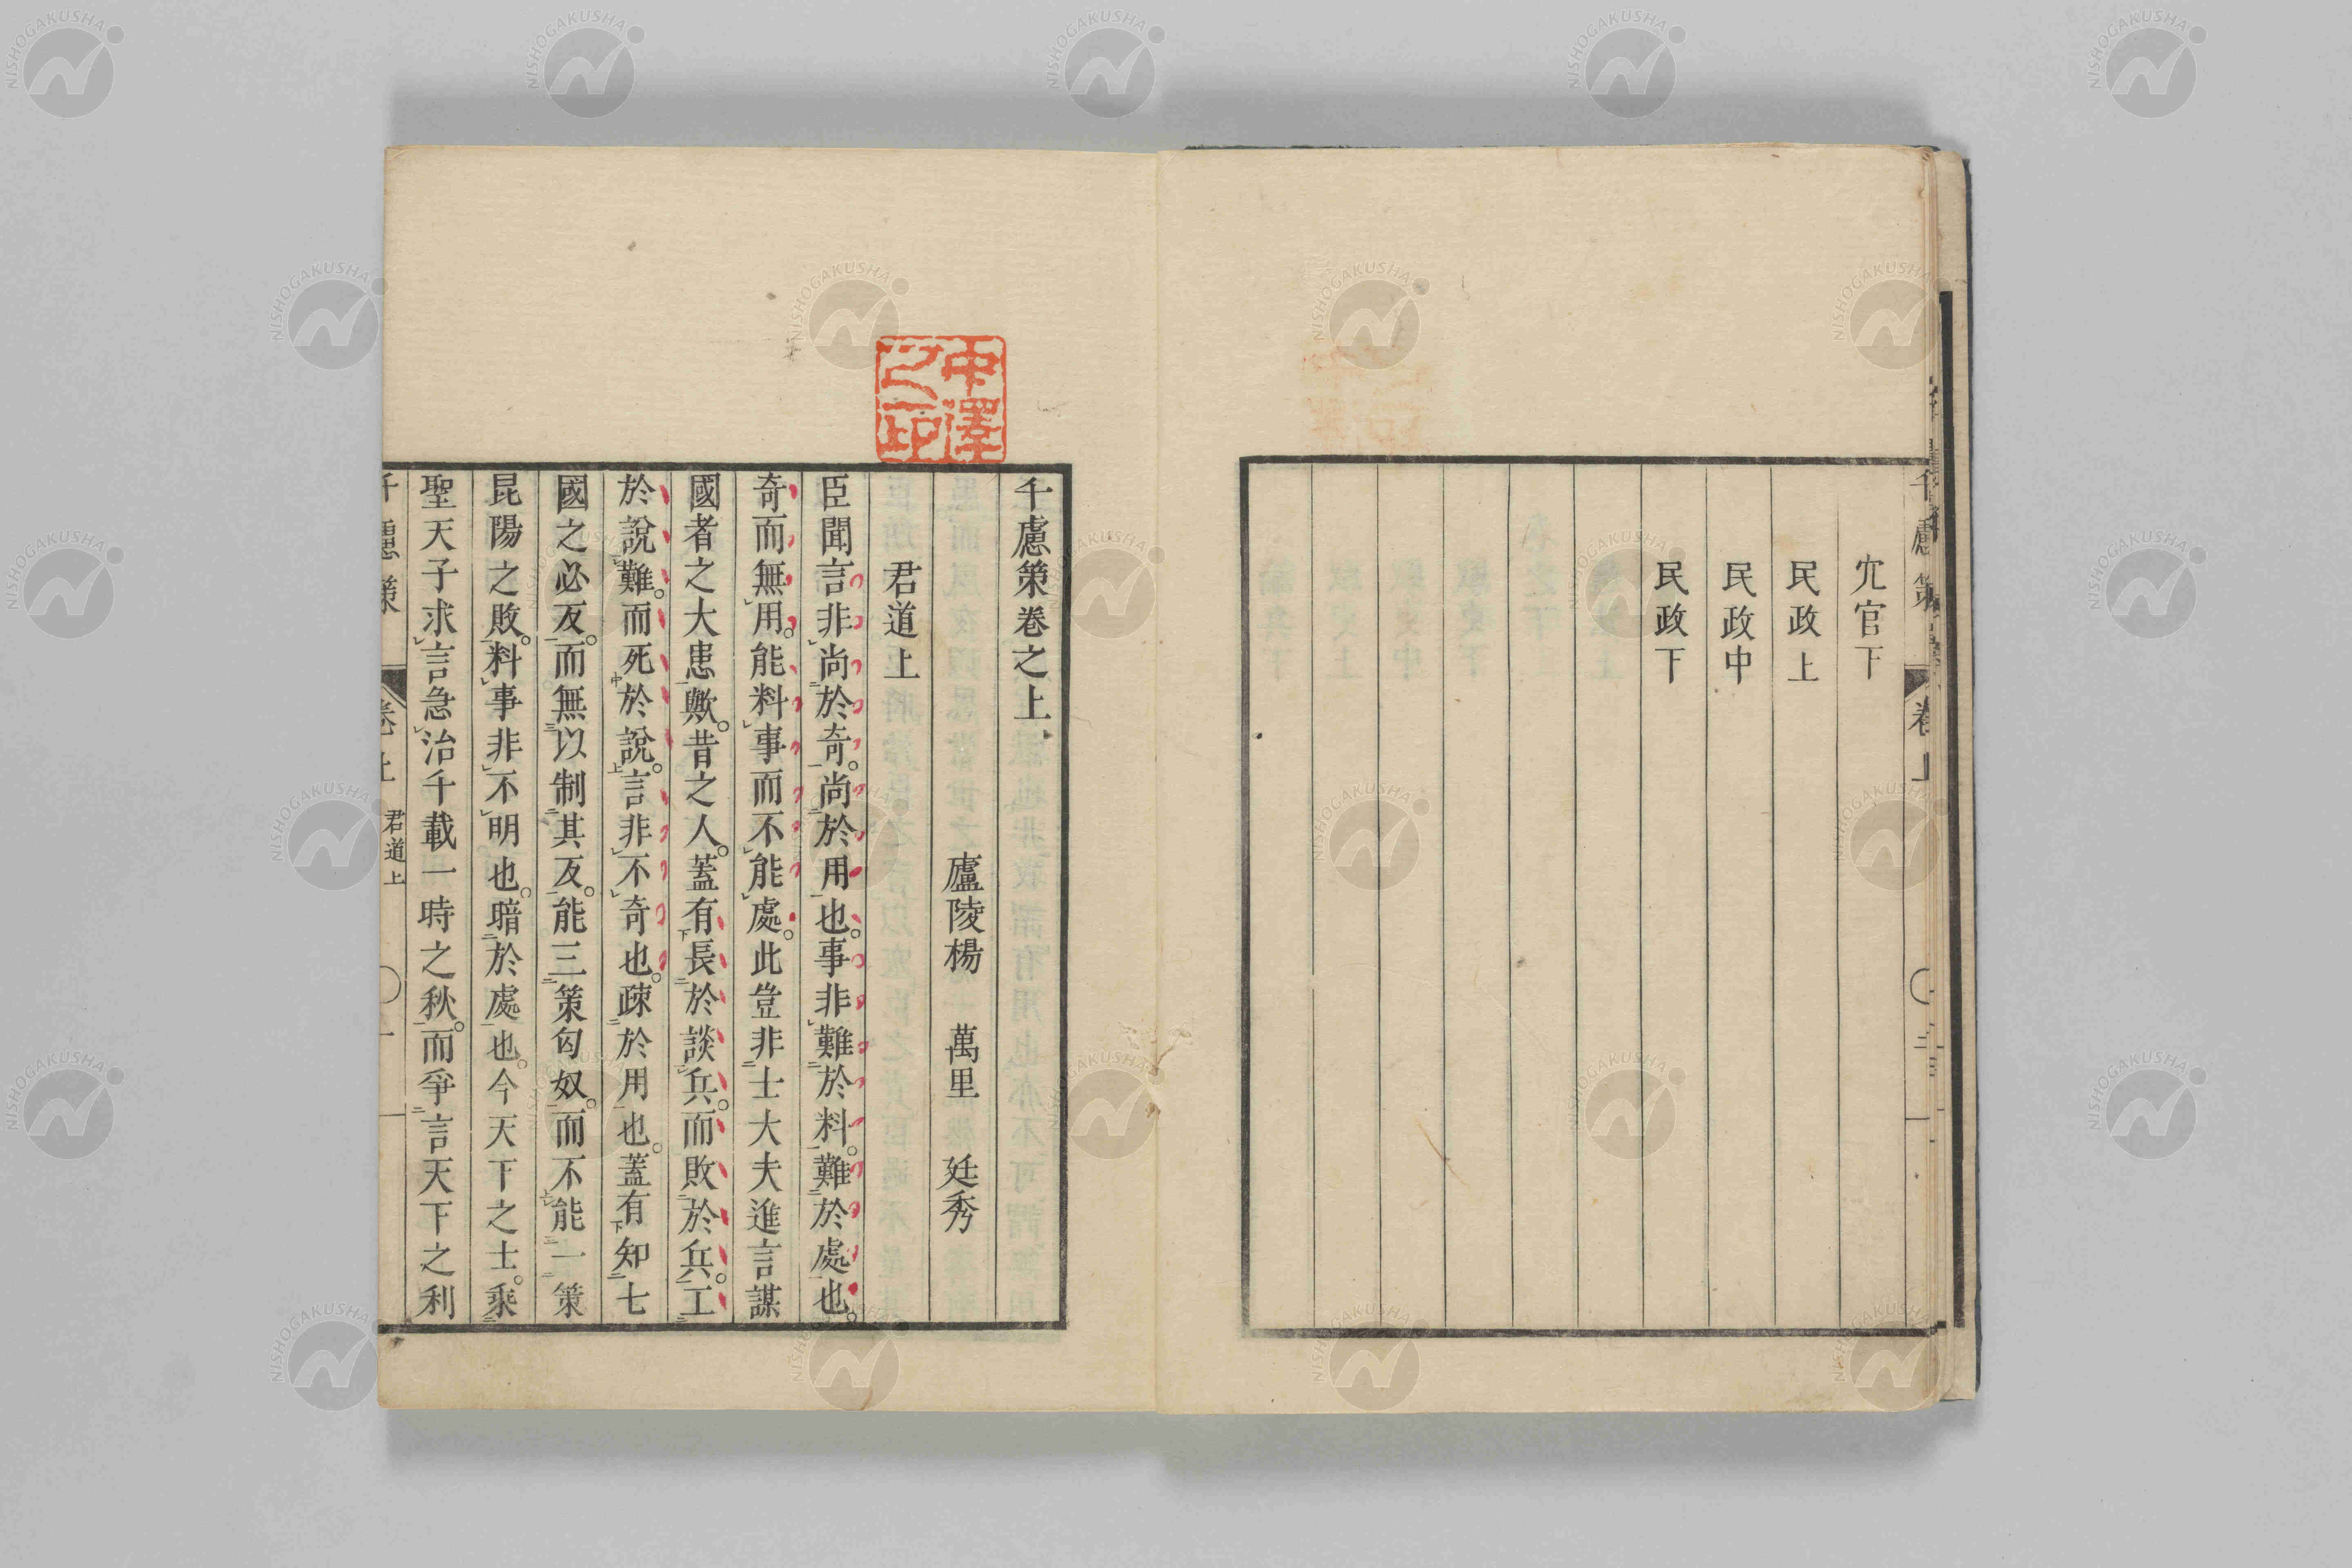 冗官下
民政上
民政中
民政下
千慮策卷之上
廬陵楊 萬里 廷秀
君道上
臣聞言非尚於奇。尚於用也。事非難於料。難於處也。
奇而無用。能料事而不能處。此豈非士大夫進言謀
國者之大患歟。昔之人。蓋有長於談兵。而敗於兵。工
於說難。而死於說。言非不奇也。疎於用也。蓋有知七
國之必反。而無以制其反。能三策匈奴。而不能一策
昆陽之敗。料事非不明也。暗於處也。今天下之士。乘
聖天子求言急治千載一時之秋。而爭言天下之利
千慮策 卷上 君道上 一
中澤之印
NISHOGAKUSHA